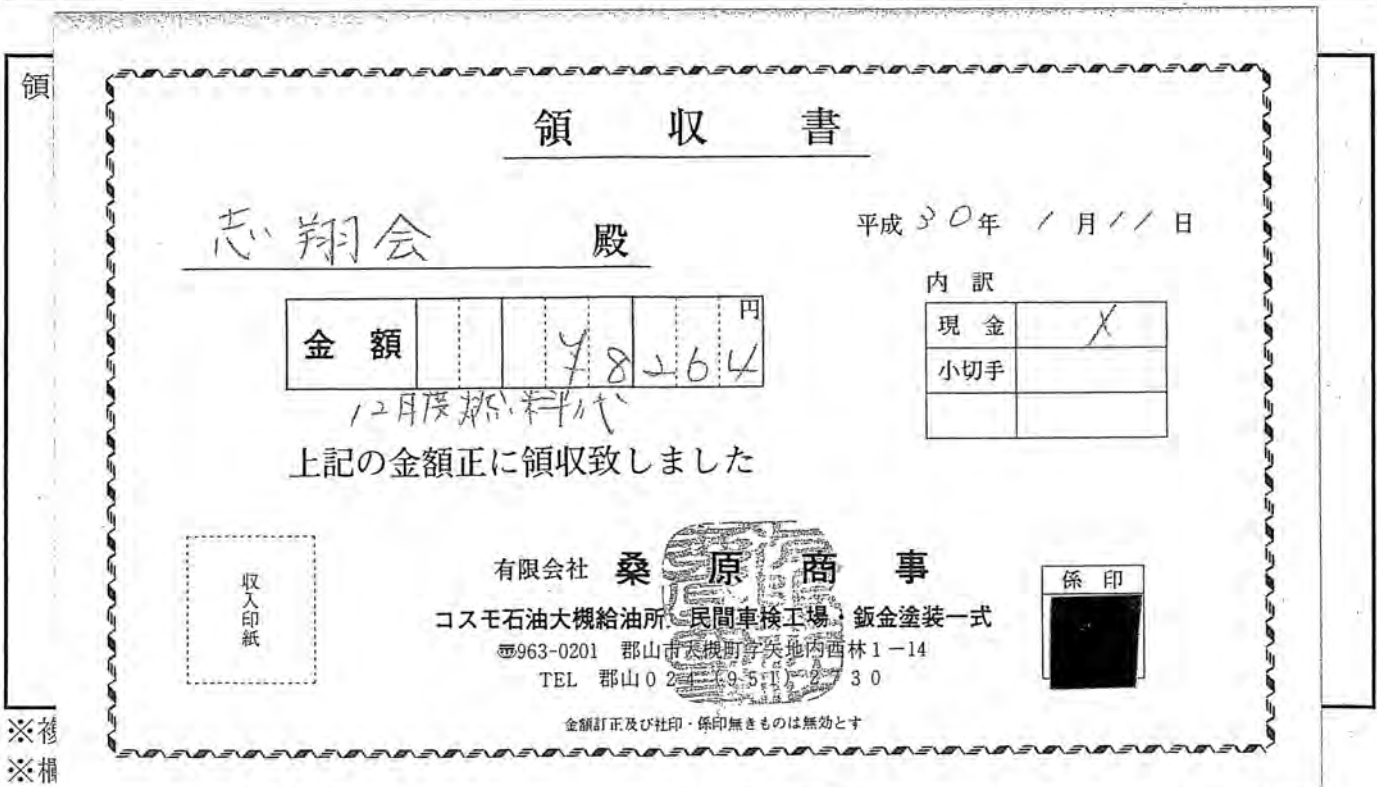 領
領 収 書
志翔会 殿
平成 30年 1月11日
内 訳
金 額 ¥8264 円
現 金 X
小切手
12月度燃料代
上記の金額正に領収致しました
収入印紙
有限会社 桑原商事
係 印
コスモ石油大槻給油所・民間車検工場・鈑金塗装一式
〒963-0201 郡山市大槻町字矢地内西林1-14
TEL 郡山024(951)
金額訂正及び社印・係印無きものは無効とす
※複
※欄